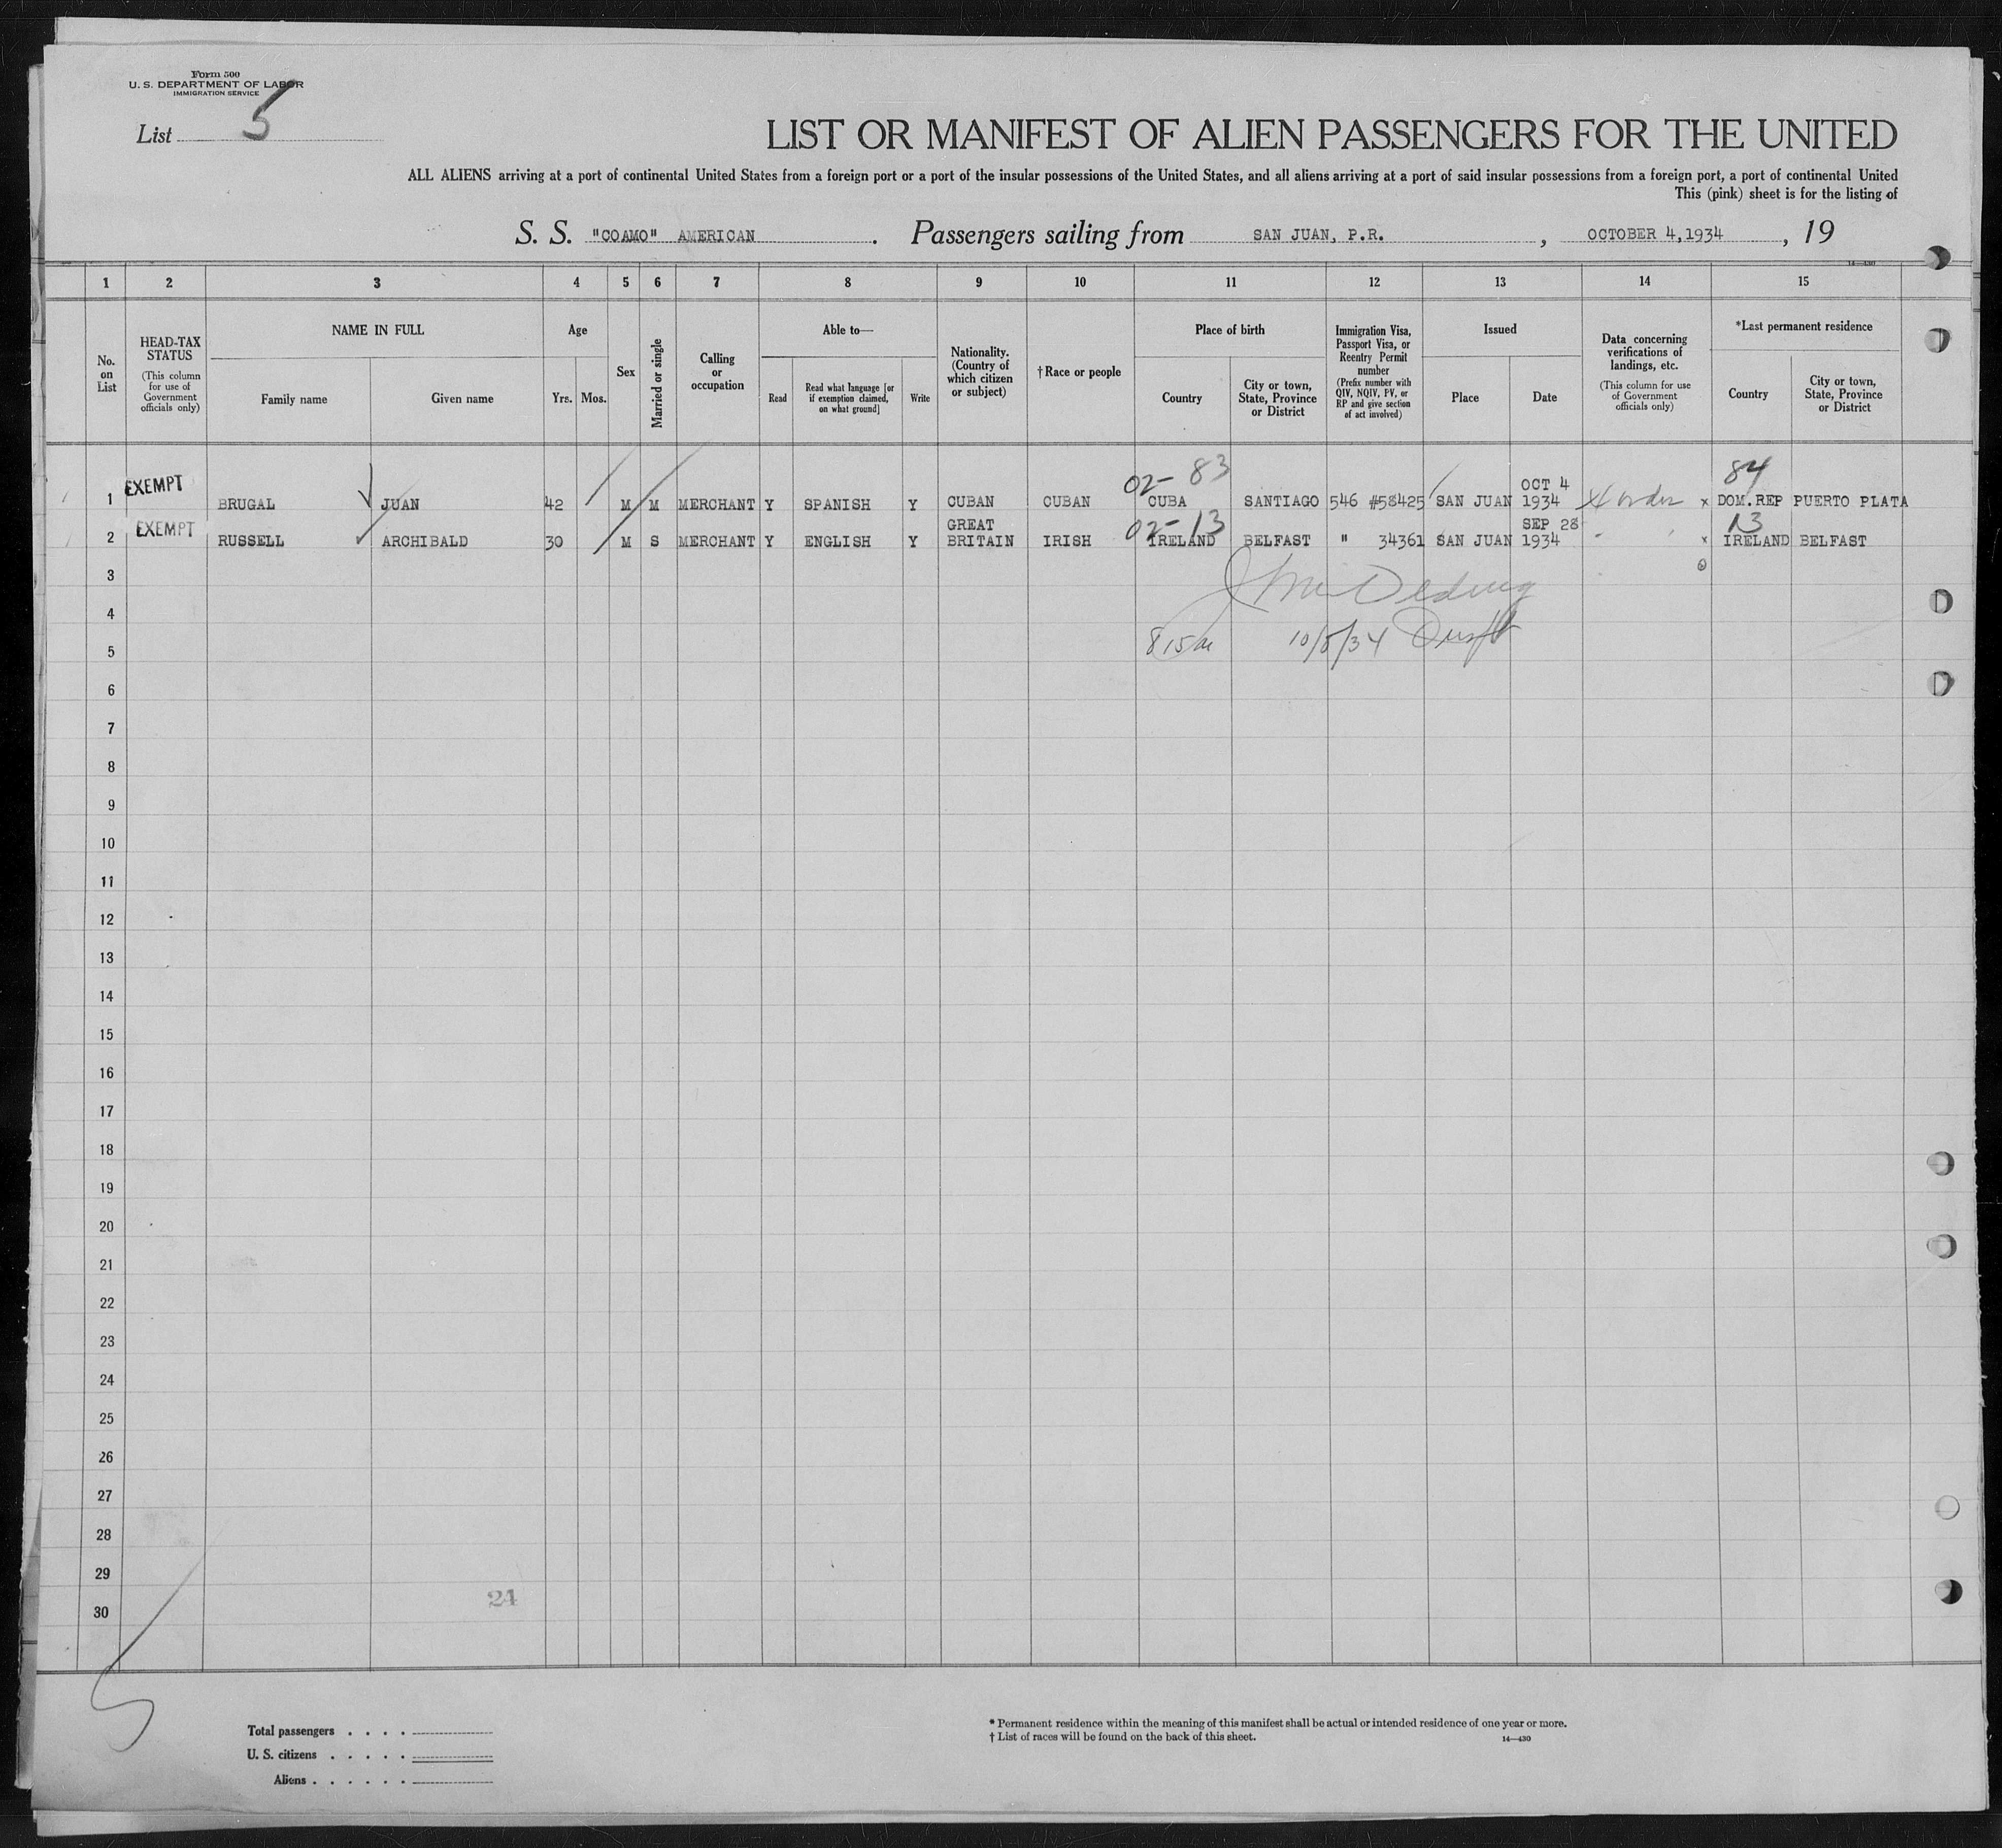 Form 500
U. S. DEPARTMENT OF LABOR
IMMIGRATION SERVICE
List 5
LIST OR MANIFEST OF ALIEN PASSENGERS FOR THE UNITED
ALL ALIENS arriving at a port of continental United States from a foreign port or a port of the insular possessions of the United States, and all aliens arriving at a port of said insular possessions from a foreign port, a port of continental United
This (pink) sheet is for the listing of
S. S. "COAMO" AMERICAN . Passengers sailing from SAN JUAN, P.R. , OCTOBER 4,1934 , 19
14—430
1 2 3 4 5 6 7 8 9 10 11 12 13 14 15
No. on List
HEAD-TAX STATUS
(This column for use of Government officials only)
NAME IN FULL
Family name
Given name
Age
Yrs. Mos.
Sex
Married or single
Calling or occupation
Able to—
Read
Read what language [or if exemption claimed, on what ground]
Write
Nationality. (Country of which citizen or subject)
†Race or people
Place of birth
Country
City or town, State, Province or District
Immigration Visa, Passport Visa, or Reentry Permit number
(Prefix number with QIV, NQIV, PV, or RP and give section of act involved)
Issued
Place
Date
Data concerning verifications of landings, etc.
(This column for use of Government officials only)
*Last permanent residence
Country
City or town, State, Province or District
02- 83 84
OCT 4
1 EXEMPT BRUGAL JUAN 42 M M MERCHANT Y SPANISH Y CUBAN CUBAN CUBA SANTIAGO 546 #58425 SAN JUAN 1934 x DOM.REP PUERTO PLATA
GREAT 02-13 SEP 28 13
2 EXEMPT RUSSELL ARCHIBALD 30 M S MERCHANT Y ENGLISH Y BRITAIN IRISH IRELAND BELFAST " 34361 SAN JUAN 1934 x IRELAND BELFAST
3
4
815a 10/8/34
5
6
7
8
9
10
11
12
13
14
15
16
17
18
19
20
21
22
23
24
25
26
27
28
29
24
30
5
Total passengers . . . .
U. S. citizens . . . . .
Aliens . . . . . .
* Permanent residence within the meaning of this manifest shall be actual or intended residence of one year or more.
† List of races will be found on the back of this sheet. 14—430